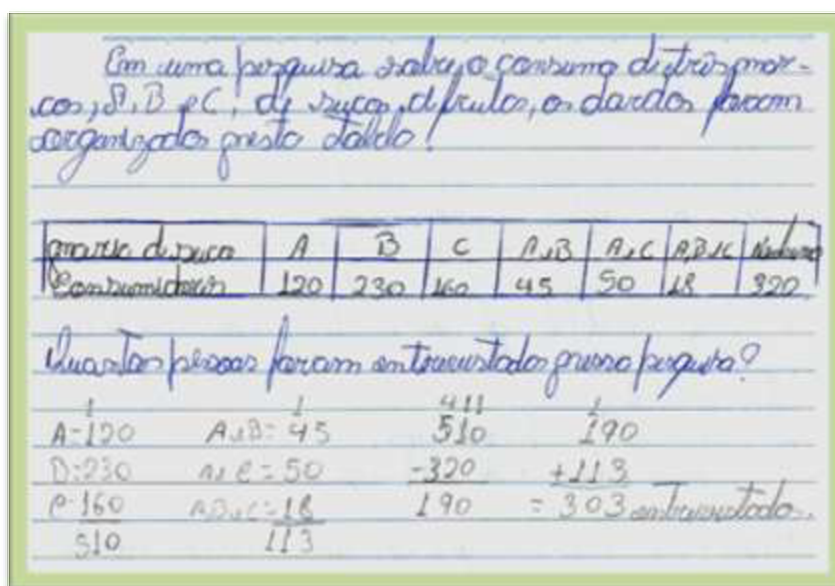 Em uma pesquisa sobre o consumo de três mar-
cas, A, B e C, de sucos de frutas, os dardos foram
organizados nesta tabela:
marca de suco A B C A e B A e C A, B e C Nenhuma
Consumidores 120 230 160 45 50 18 320
Quantas pessoas foram entrevistadas nessa pesquisa?
1 1 411 1
A-120 A e B= 45 510 190
B:230 A e C = 50 -320 +113
C-160 A B e C=18 190 = 303 entrevistados.
510 113